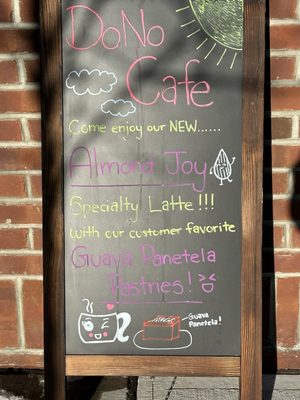 DoNo
Cafe
Come enjoy our NEW......
Almond Joy
Specialty Latte!!!
With our customer favorite
Guava Panetela
Pastries!
Guava
Panetela!